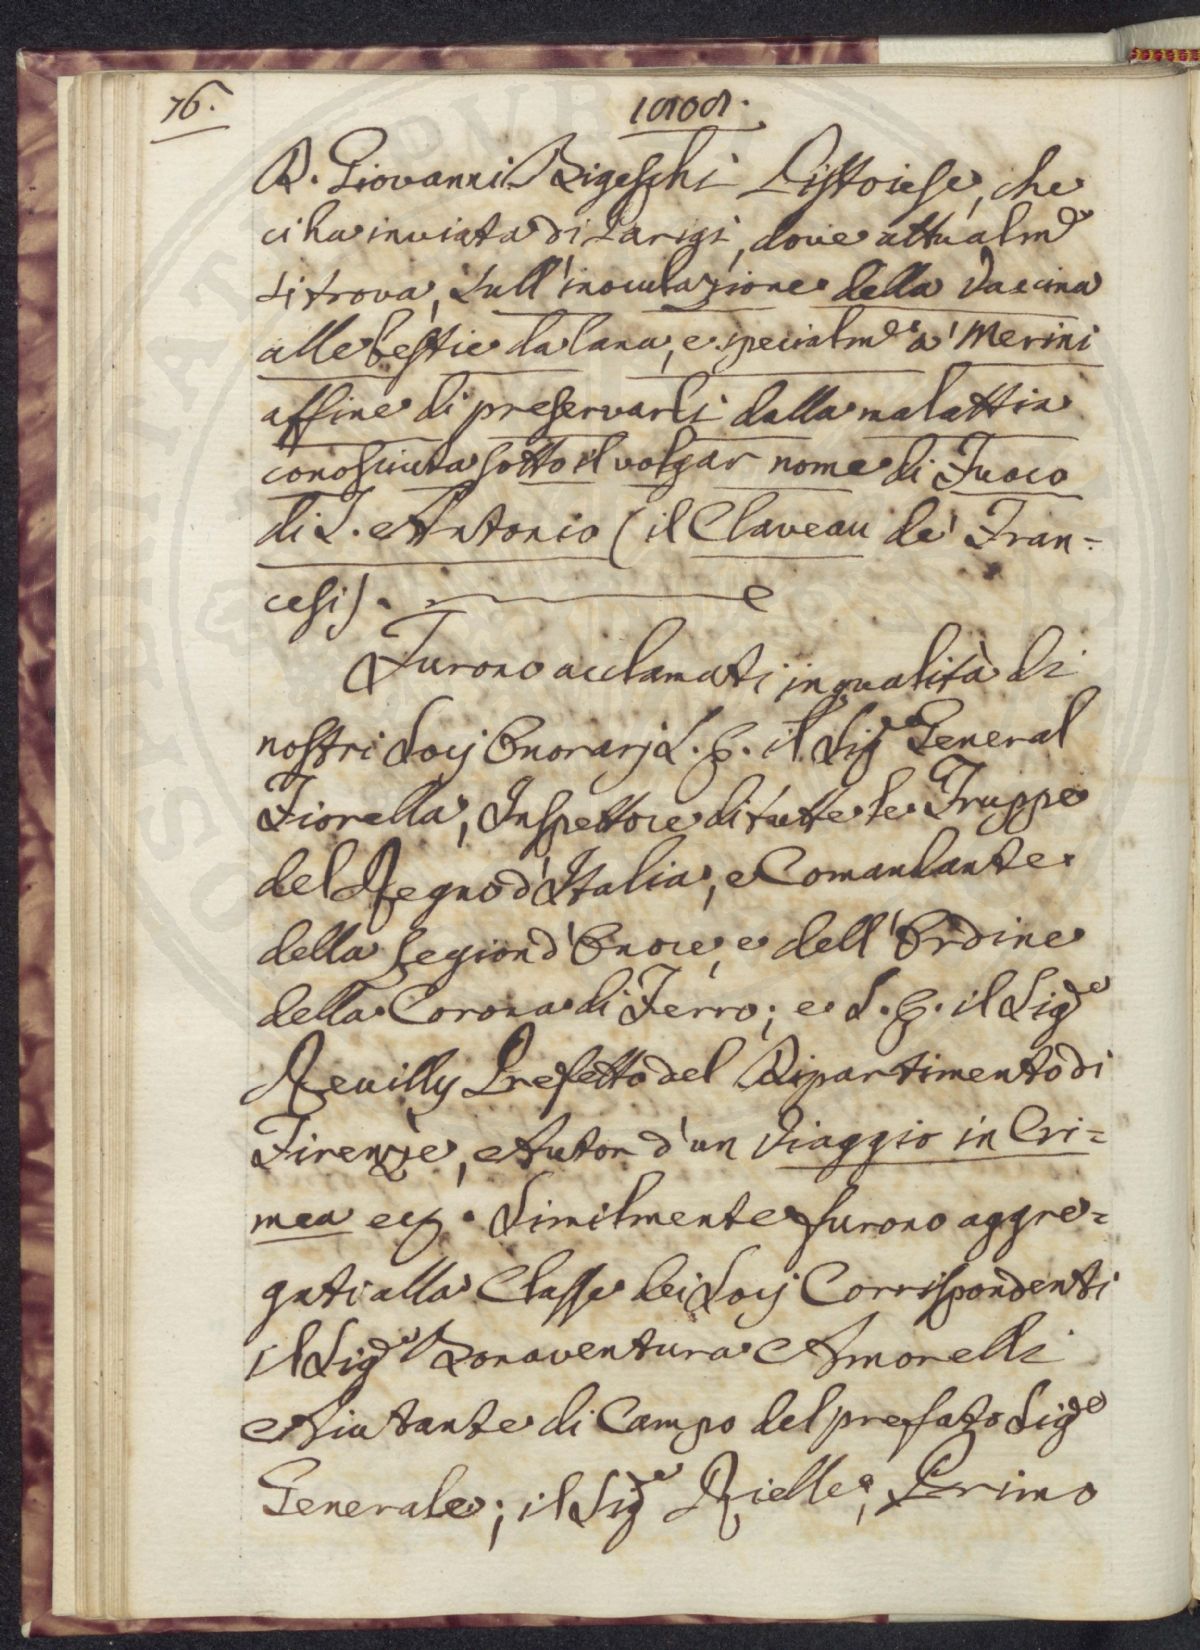 76.
1808.
D. Giovanni Bigeschi Pistoiese, che
ci ha inviata di Parigi, dove attualm.e
si trova, sull'inoculazione della Vaccina
alle bestie da lana, e specialm.e a' Merini
affine di preservarli dalla malattia
conosciuta sotto il volgar nome di Fuoco
di S. Antonio (il Claveau de' Fran=
cesi).
Furono acclamati in qualità di
nostri Socij Onorarj S. E. il Sig.e General
Fiorella, Inspettore di tutte le Truppe
del Regno d'Italia, e Comandante
della Legion d'Onore, e dell'Ordine
della Corona di Ferro; e S. E. il Sig.e
Reuilly Prefetto del Dipartimento di
Firenze, Autor d'un Viaggio in Cri=
mea ec. Similmente furono aggre=
gati alla Classe dei Socij Corrispondenti
il Sig.e Bonaventura Amorelli
Aiutante di Campo del prefato Sig.e
Generale; il Sig.e Rielle, Primo